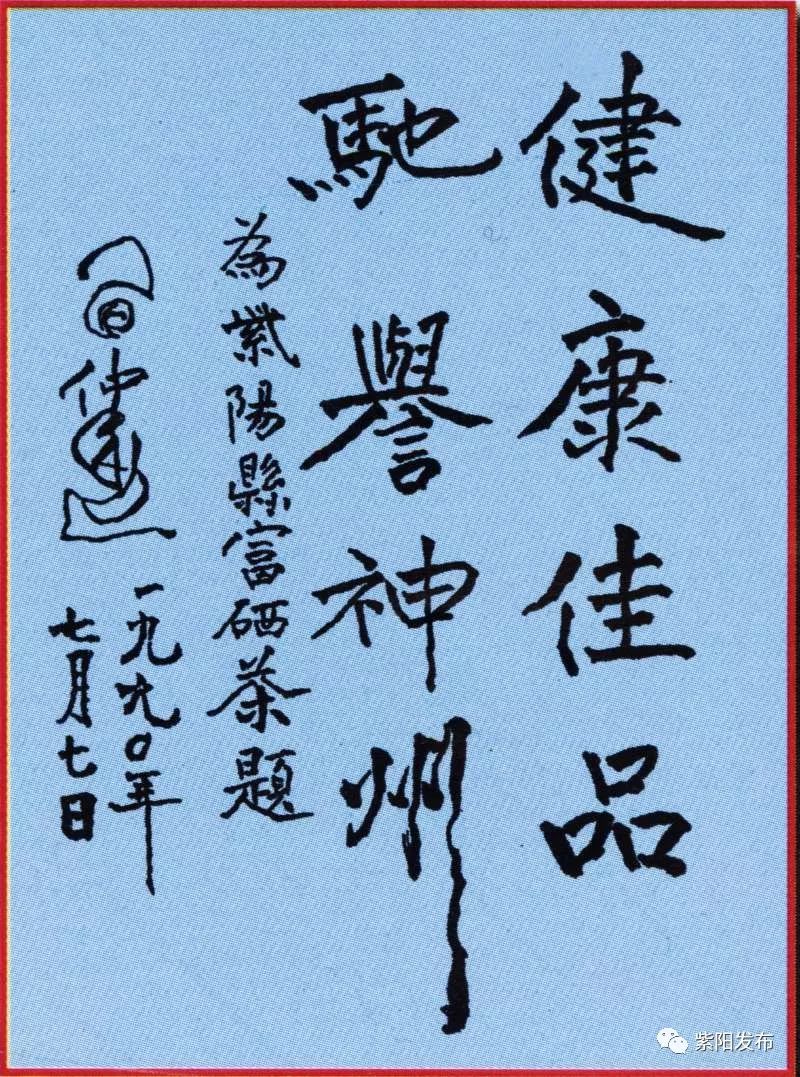 健康佳品
馳譽神州
為紫陽縣富硒茶題
仲
一九九〇年
七月七日
紫阳发布